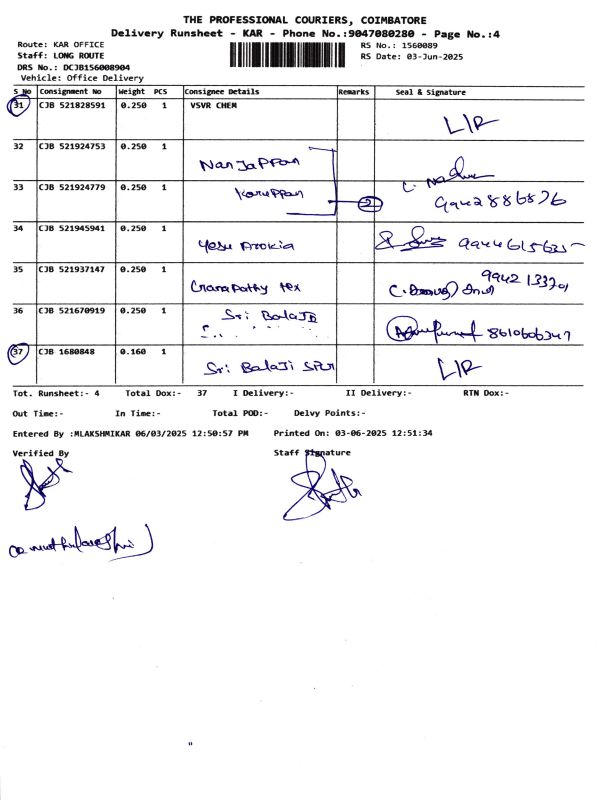 THE PROFESSIONAL COURIERS, COIMBATORE
Delivery Runsheet - KAR - Phone No.:9047080280 - Page No.:4
Route: KAR OFFICE RS No.: 1560089
Staff: LONG ROUTE RS Date: 03-Jun-2025
DRS No.: DCJB156008904
Vehicle: Office Delivery
S No Consignment No Weight PCS Consignee Details Remarks Seal & Signature
31 CJB 521828591 0.250 1 VSVR CHEM L/R
32 CJB 521924753 0.250 1 Nanjappan
33 CJB 521924779 0.250 1 Karuppan 2 9942886826
34 CJB 521945941 0.250 1 Yesu Arokia
35 CJB 521937147 0.250 1 tex
36 CJB 521670919 0.250 1 Sri Balaji 8610606347
37 CJB 1680848 0.160 1 Sri Balaji L/R
Tot. Runsheet:- 4 Total Dox:- 37 I Delivery:- II Delivery:- RTN Dox:-
Out Time:- In Time:- Total POD:- Delvy Points:-
Entered By :MLAKSHMIKAR 06/03/2025 12:50:57 PM Printed On: 03-06-2025 12:51:34
Verified By Staff Signature